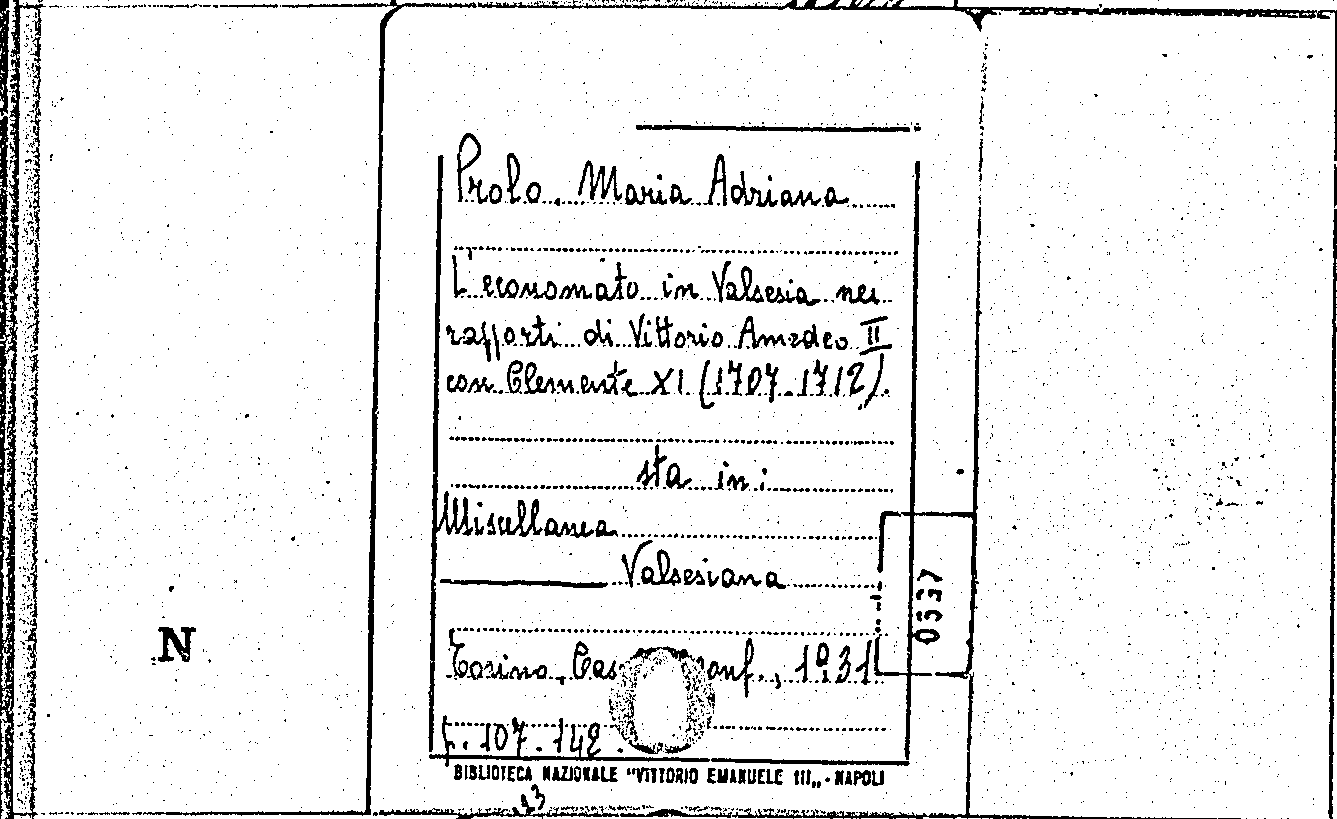 Prolo, Maria Adriana
L'economato in Valsesia nei
rapporti di Vittorio Amedeo II
con Clemente XI (1707-1712).
sta in:
Miscellanea
Valsesiana
0537
N
Torino, 1931
f. 107-142.
BIBLIOTECA NAZIONALE "VITTORIO EMANUELE III„ - NAPOLI